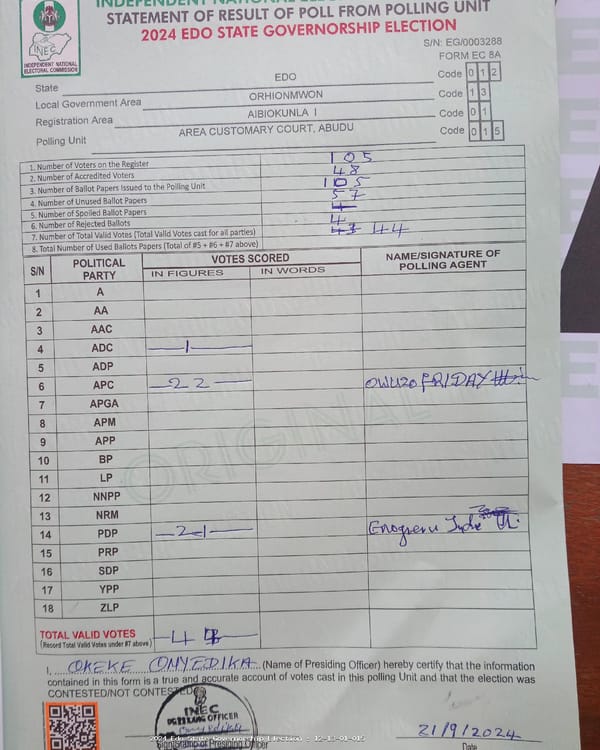 INDEPENDENT NATIONAL
STATEMENT OF RESULT OF POLL FROM POLLING UNIT
2024 EDO STATE GOVERNORSHIP ELECTION
INEC
INDEPENDENT NATIONAL
ELECTORAL COMMISSION
S/N: EG/0003288
FORM EC 8A
State EDO Code 0 1 2
Local Government Area ORHIONMWON Code 1 3
Registration Area AIBIOKUNLA I Code 0 1
Polling Unit AREA CUSTOMARY COURT, ABUDU Code 0 1 5
1. Number of Voters on the Register 105
2. Number of Accredited Voters 48
3. Number of Ballot Papers Issued to the Polling Unit 105
4. Number of Unused Ballot Papers 57
5. Number of Spoiled Ballot Papers
6. Number of Rejected Ballots 4
7. Number of Total Valid Votes (Total Valid Votes cast for all parties) 43 44
8. Total Number of Used Ballots Papers (Total of #5 + #6 + #7 above)
S/N POLITICAL PARTY VOTES SCORED NAME/SIGNATURE OF POLLING AGENT
IN FIGURES IN WORDS
1 A
2 AA
3 AAC
4 ADC 1
5 ADP
6 APC 22 OWUZO FRIDAY
7 APGA
8 APM
9 APP
10 BP
11 LP
12 NNPP
13 NRM
14 PDP 21
15 PRP
16 SDP
17 YPP
18 ZLP
ORIGINAL
TOTAL VALID VOTES 4
(Record Total Valid Votes under #7 above)
I, OKEKE ONYEDIKA (Name of Presiding Officer) hereby certify that the information
contained in this form is a true and accurate account of votes cast in this polling Unit and that the election was
CONTESTED/NOT CONTESTED
INEC
PRESIDING OFFICER
2024 Edo State Governorship Election - 12-13-01-015
Sign/Stamp of Presiding Officer
21/9/2024
Date